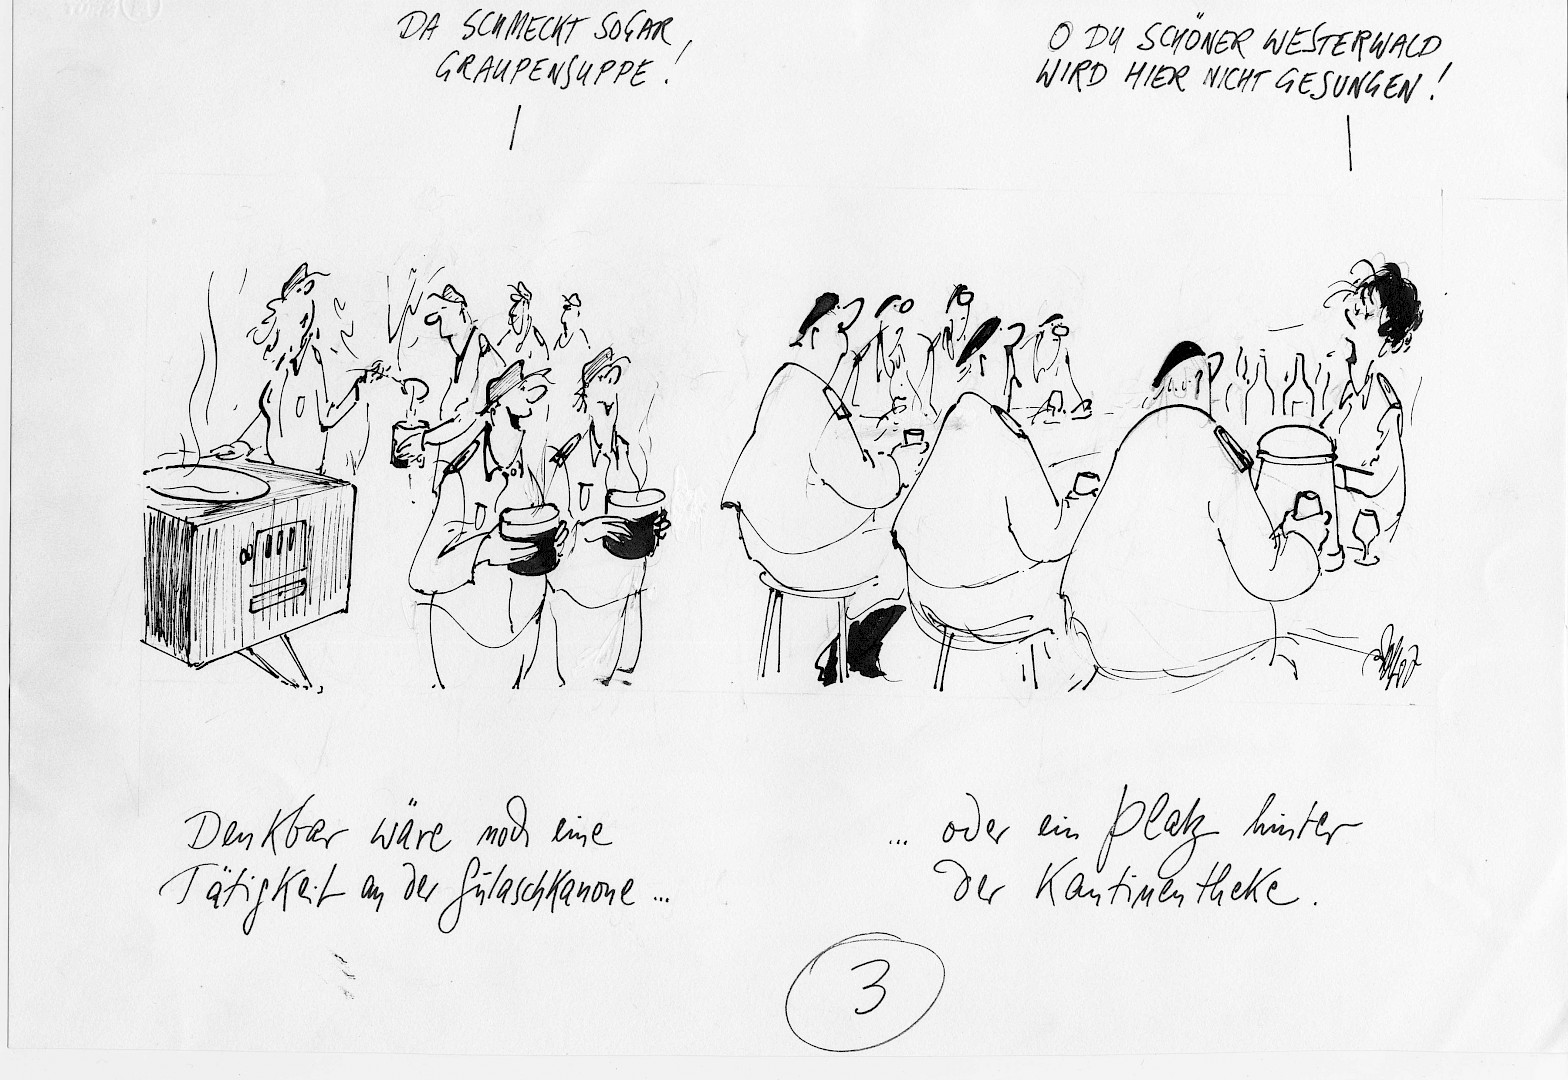 DA SCHMECKT SOGAR
GRAUPENSUPPE!
O DU SCHÖNER WESTERWALD
WIRD HIER NICHT GESUNGEN!
Denkbar wäre noch eine
Tätigkeit an der Gulaschkanone...
... oder ein Platz hinter
der Kantinentheke.
3